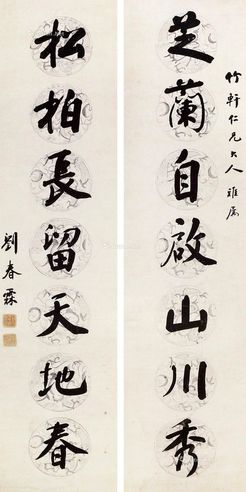 竹軒仁兄大人雅屬
芝蘭自啟山川秀
松柏長留天地春
劉春霖